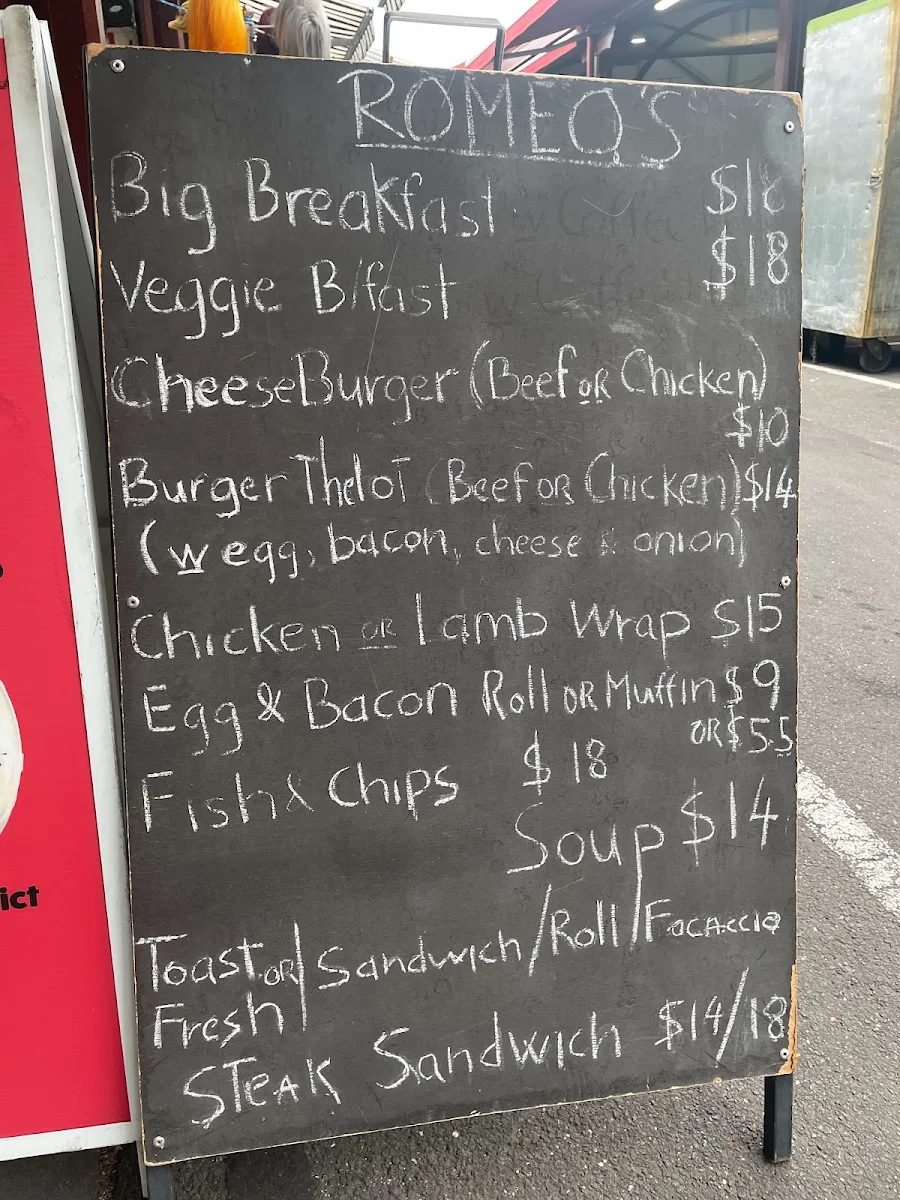 ROMEO'S
Big Breakfast $18
Veggie B/fast $18
CheeseBurger (Beef OR Chicken)
$10
Burger Thelot (Beef OR Chicken) $14
(w egg, bacon, cheese & onion)
Chicken OR Lamb Wrap $15
Egg & Bacon Roll OR Muffin $9
OR $5.5
Fish & Chips $18
Soup $14
Toast OR Fresh / Sandwich / Roll / Focaccia
Steak Sandwich $14/18
ict